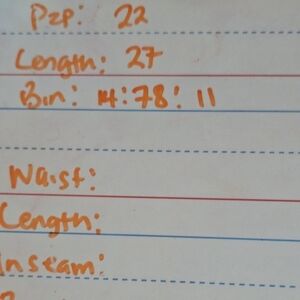 P2P: 22
Length: 27
Bin: 14:78:11
Waist:
Length:
Inseam: